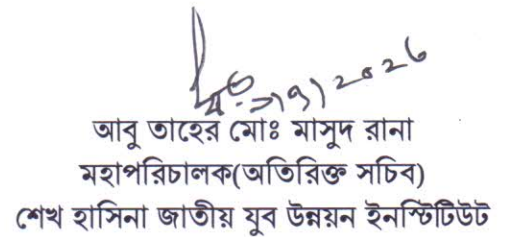 আবু তাহের মোঃ মাসুদ রানা
মহাপরিচালক(অতিরিক্ত সচিব)
শেখ হাসিনা জাতীয় যুব উন্নয়ন ইনস্টিটিউট